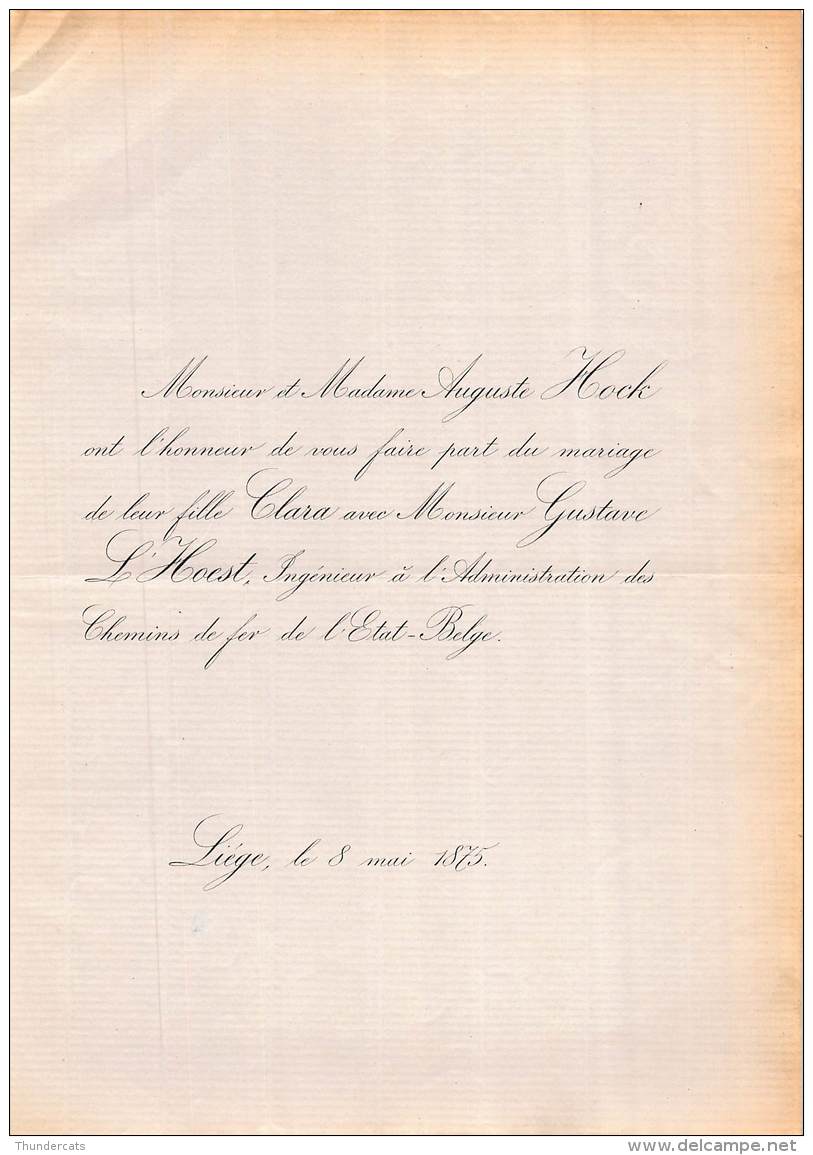 Monsieur et Madame Auguste Hock
ont l'honneur de vous faire part du mariage
de leur fille Clara avec Monsieur Gustave
L'Hoest, Ingénieur à l'Administration des
Chemins de fer de l'Etat-Belge.
Liége, le 8 mai 1875.
Thundercats
www.delcampe.net